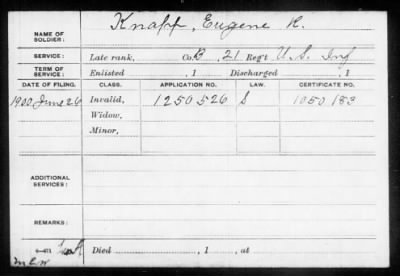 Knapp, Eugene R.
NAME OF SOLDIER:
SERVICE: Late rank, Co. B, 21 Reg't U.S. Inf
TERM OF SERVICE: Enlisted , 1 Discharged , 1
DATE OF FILING. CLASS. APPLICATION NO. LAW. CERTIFICATE NO.
1900 June 26 Invalid, 1250526 S 1050183
Widow,
Minor,
ADDITIONAL SERVICES:
REMARKS:
Died , 1 , at